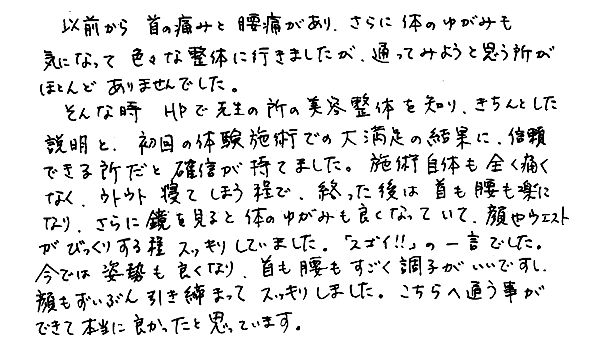 以前から 首の痛みと 腰痛があり、さらに 体のゆがみも
気になって 色々な整体に行きましたが、通ってみようと思う所が
ほとんど ありませんでした。
そんな時 HPで先生の所の美容整体を知り、きちんとした
説明と、初回の体験施術での大満足の結果に、信頼
できる所だと 確信が持てました。施術自体も全く痛く
なく、ウトウト 寝てしまう程で、終った後は 首も腰も楽に
なり、さらに鏡を見ると 体のゆがみも良くなっていて、顔やウエスト
がびっくりする程 スッキリしていました。「スゴイ!!」の一言でした。
今では 姿勢も良くなり、首も腰もすごく調子がいいですし、
顔もずいぶん引き締まって スッキリしました。こちらへ通う事が
できて本当に良かったと思っています。